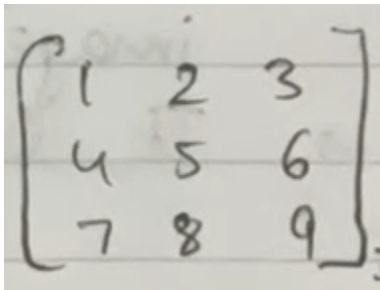 1 2 3
4 5 6
7 8 9